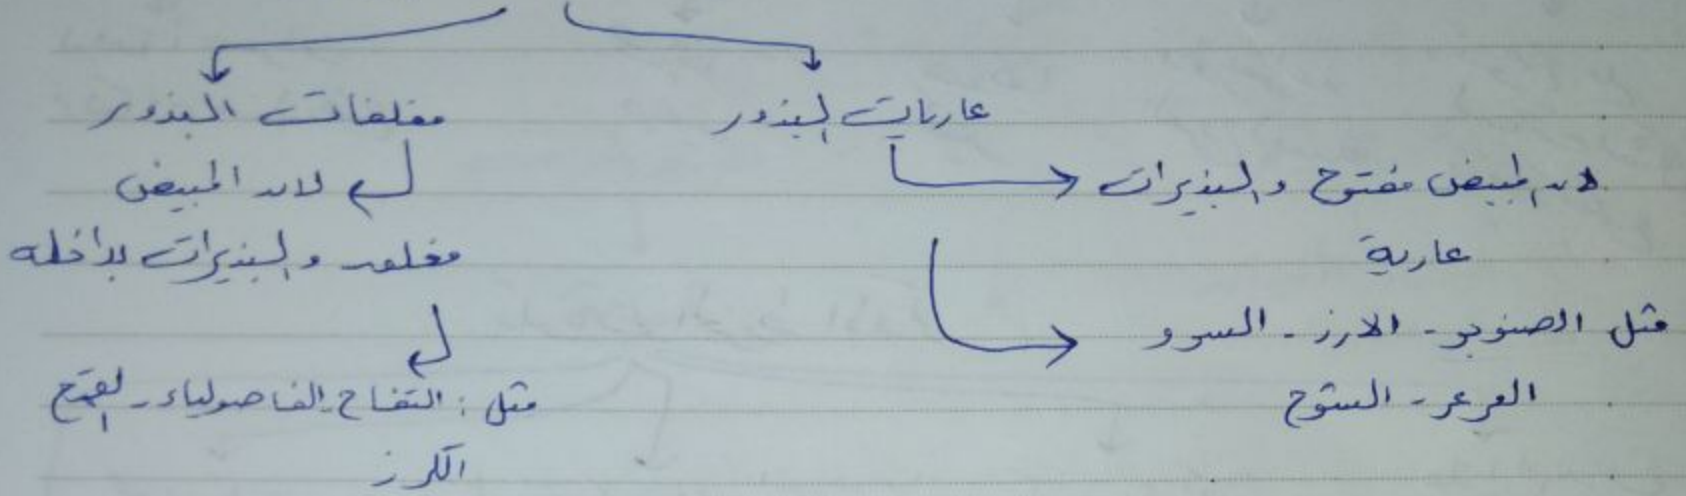 عاريات البذور
لان المبيض مفتوح والبذيرات
عارية
مثل الصنوبر - الارز - السرو
العرعر - الشوح
مغلفات البذور
لان المبيض
مغلق والبذيرات بداخله
مثل : التفاح - الفاصولياء - القمح
الكرز